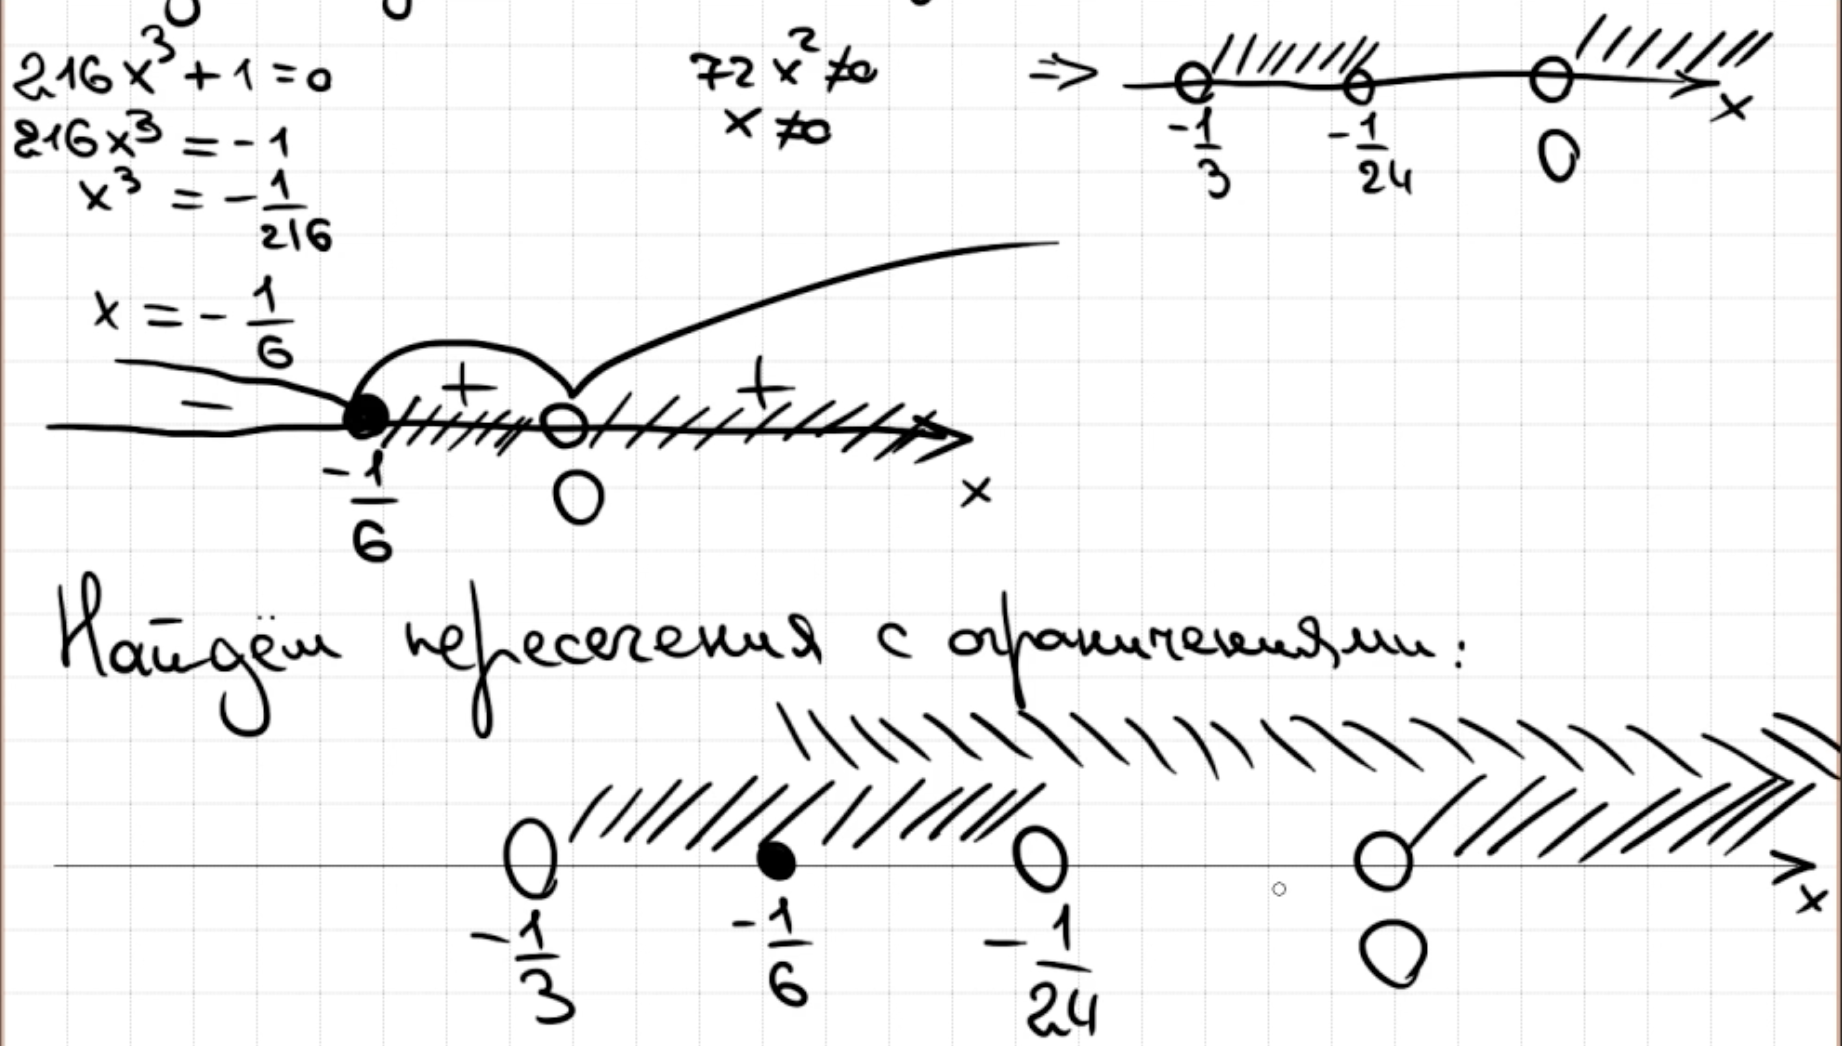 216x³ + 1 = 0
216x³ = -1
x³ = -1/216
x = -1/6
72x² ≠0
x ≠0
=> -1/3 -1/24 0 x
- + +
-1/6 0 x
Найдём пересечения с ограничениями:
-1/3 -1/6 -1/24 0 x